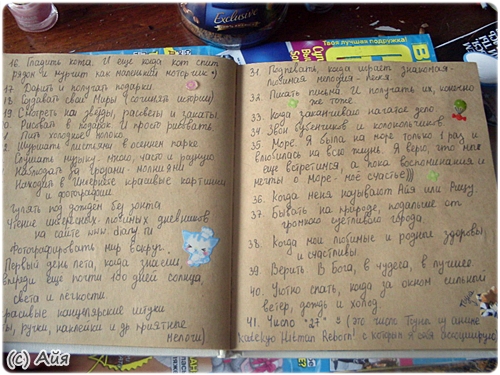 Exclusive
Твоя лучшая подружка!
16. Гладить кота. И еще когда кот спит
рядом и мурчит как маленький моторчик :)
17. Дарить и получать подарки
18. Создавать свои Миры (сочинять истории)
19. Смотреть на звёзды, рассветы и закаты
Рисовать в подарок и просто рисовать.
Пить холодное молоко.
Шуршать листьями в осеннем парке
Слушать музыку. много, часто и разную
Наблюдать за грозами - молниями
Находить в Интернете красивые картинки
и фотографии
Гулять под дождём без зонта
Чтение интересных, любимых дневников
на сайте www. diary. ru
Фотографировать мир вокруг.
Первый день лета, когда знаешь
впереди ещё почти 100 дней солнца
света и лёгкости.
красивые канцелярские штуки
ручки, наклейки и др приятные
мелочи)
31. Подпевать, когда играет знакомая-
любимая мелодия - песня.
32. Писать письма и получать их, конечно
же тоже.
33. Когда заканчиваю начатое дело
34. Звон бубенчиков и колокольчиков
35 Море. Я была на море только 1 раз и
влюбилась на всю жизнь. Я верю, что мы
ещё встретимся, а пока воспоминания и
мечты о море - моё счастье)))
36. Когда меня называют Айя или Рицу.
37. Бывать на природе, подальше от
громкого суетливого города
38. Когда мои любимые и родные здоровы
и счастливы.
39. Верить в Бога, в чудеса, в лучшее.
40. Уютно спать, когда за окном сильный
ветер, дождь и холод
41. Число "27" (это число Тсуны из аниме
Hitman Reborn! с которым я себя ассоциирую
(c) Айя